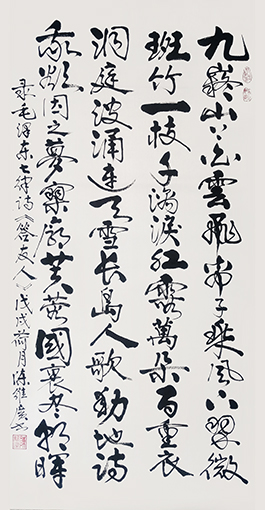 九嶷山上白雲飛帝子乘風下翠微
斑竹一枝千滴淚紅霞萬朵百重衣
洞庭波涌連天雪長島人歌動地詩
我欲因之夢寥廓芙蓉國裏盡朝暉
录毛澤東七律詩《答友人》戊戌荷月陳維书